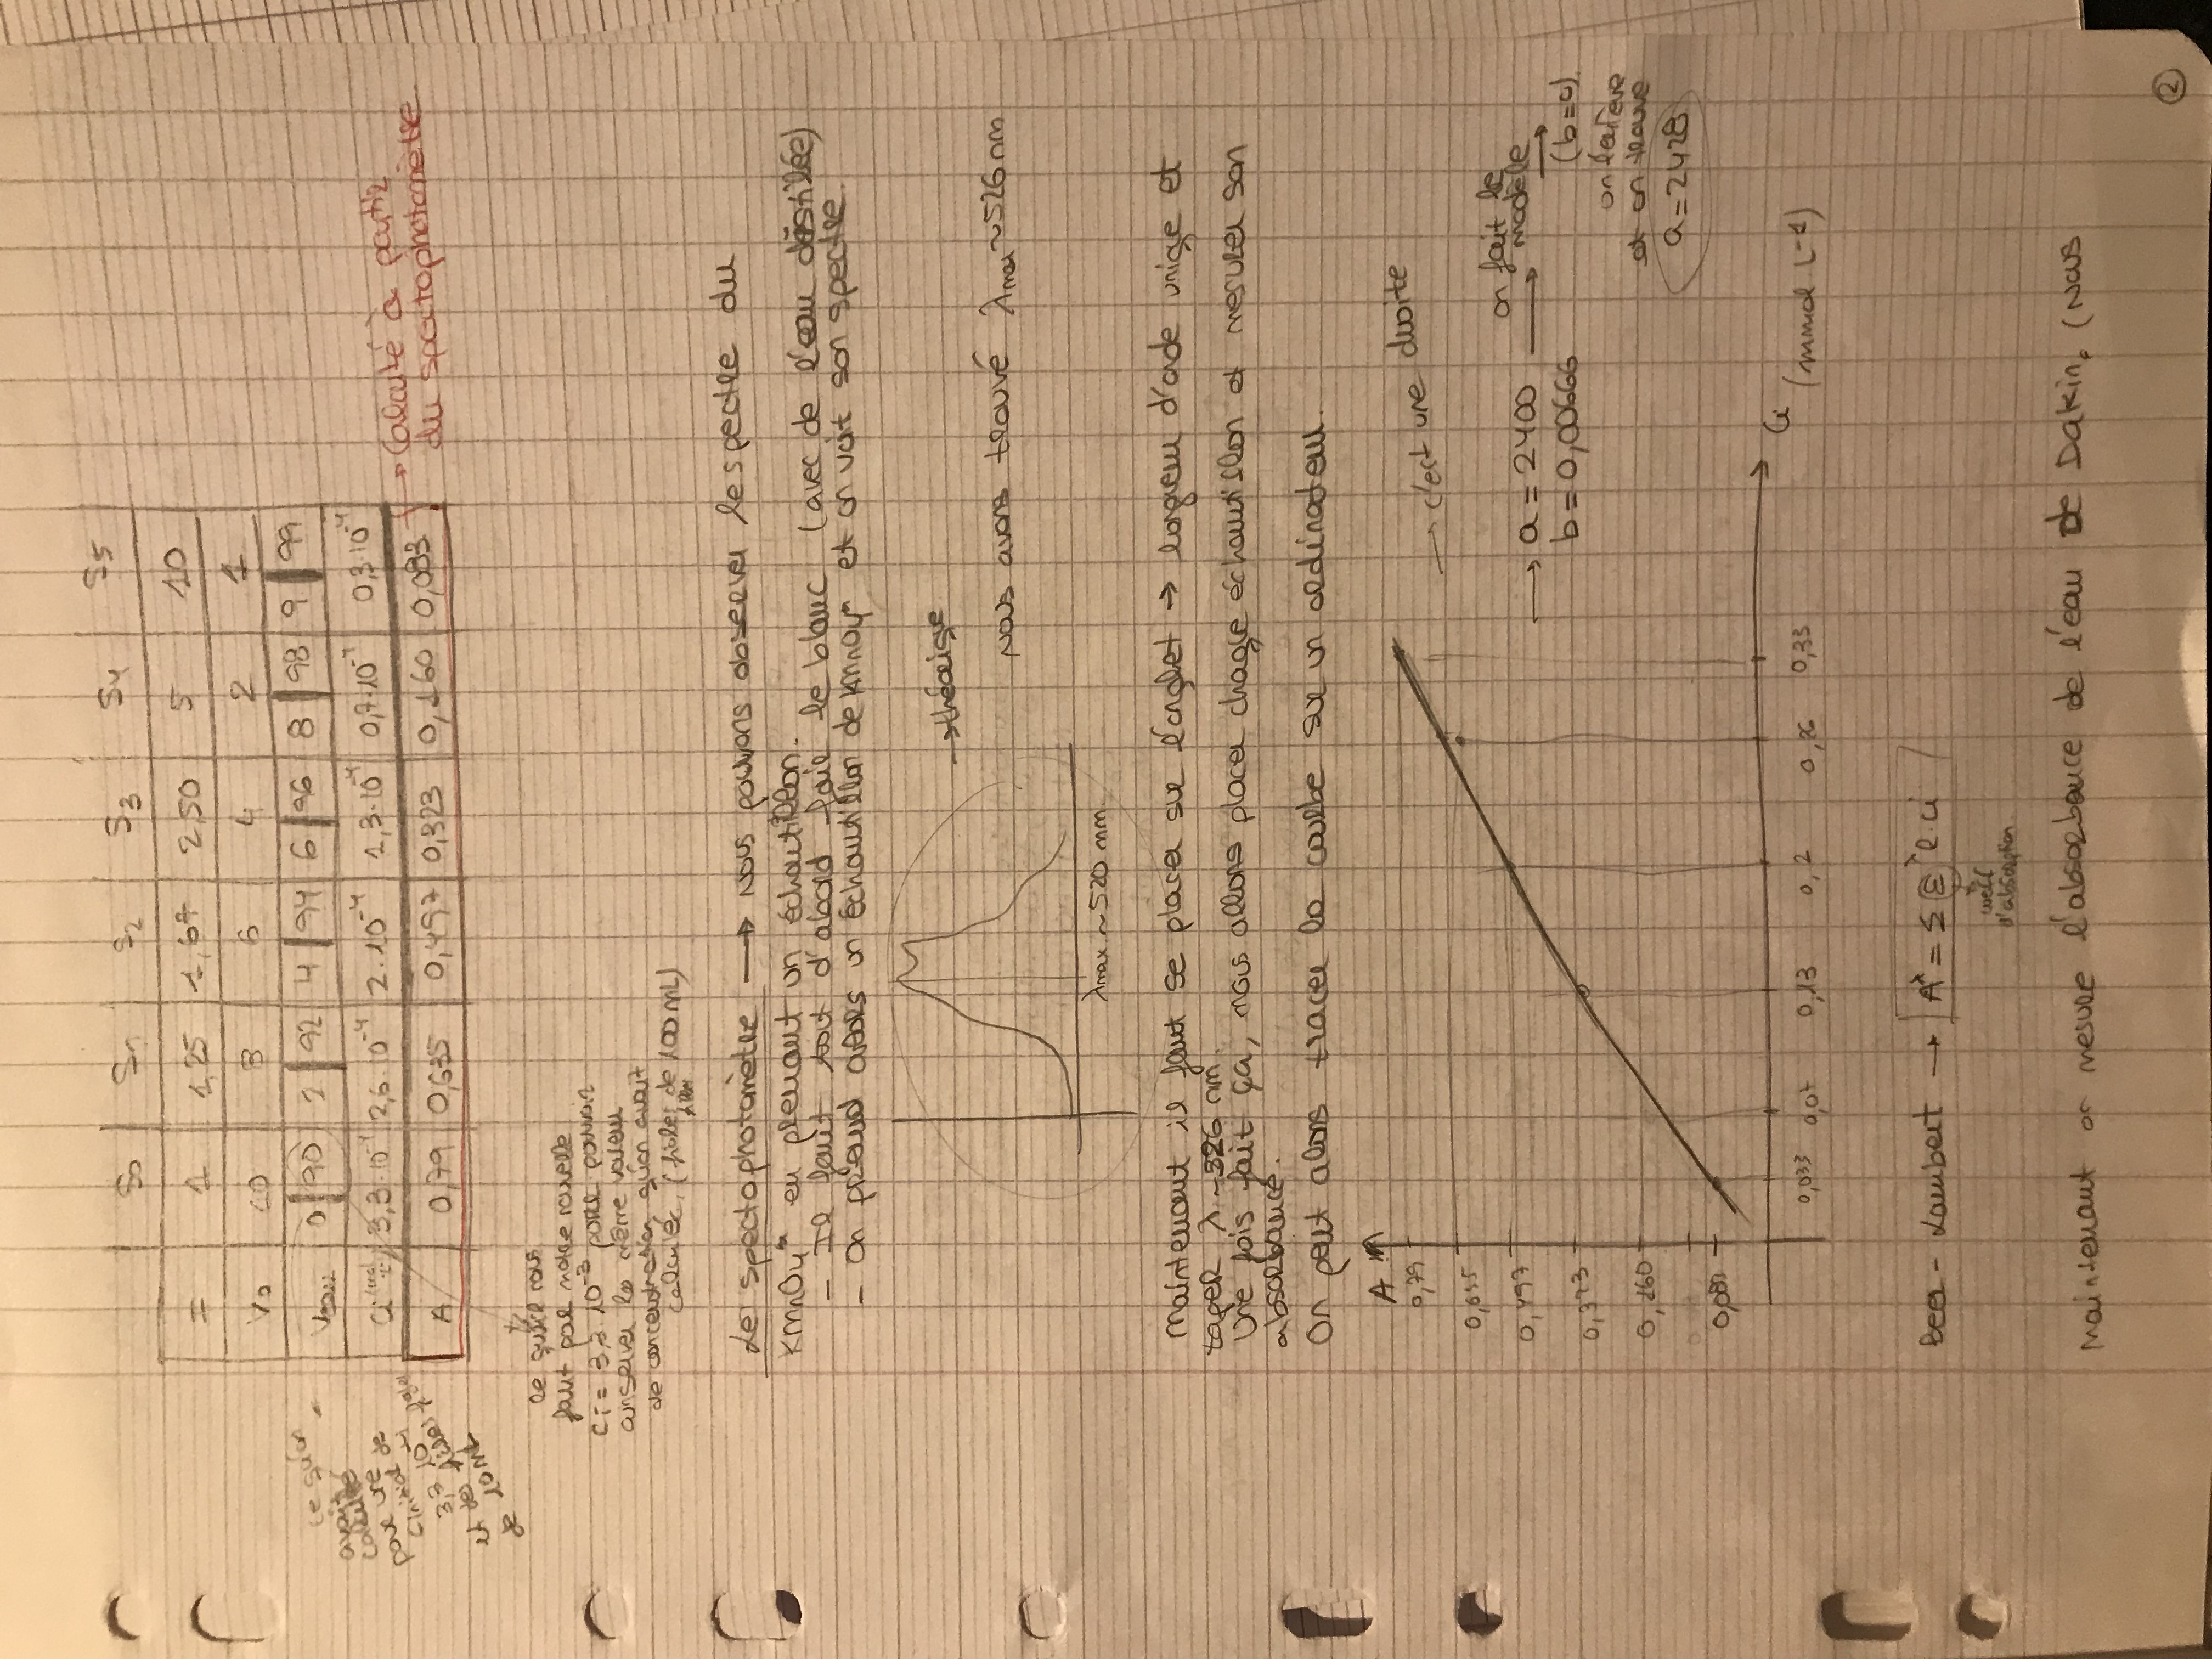 S0 S1 S2 S3 S4 S5
= 1 1,25 1,67 2,50 5 10
V0 10 8 6 4 2 1
Veau 0 90 2 92 4 94 6 96 8 98 9 99
Ci (mol/L) 3,3·10⁻⁴ 2,6·10⁻⁴ 2·10⁻⁴ 1,3·10⁻⁴ 0,7·10⁻⁴ 0,3·10⁻⁴
A 0,79 0,635 0,497 0,323 0,160 0,083
→ Calculé à partir
du spectophotomètre
ce qu'on
avait
calculé
pour une
Cinitial de
3,3 10⁻⁴
et des fioles
de 10 mL
Ce qu'il nous
faut par notre nouvelle
Ci = 3,3·10⁻³ pour pouvoir
conserver la même valeur
de concentration qu'on avait
calculé, (fioles de 100 mL)
Le spectophotomètre → Nous pouvons observer le spectre du
KMnO4 en prenant un échantillon.
- Il faut tout d'abord faire le blanc (avec de l'eau distilée)
- On prend alors un échantillon de KMnO4 et on voit son spectre.
→ théorique
Nous avons trouvé λmax ~ 526 nm
λmax ~ 520 nm
Maintenant il faut se placer sur l'onglet → longueur d'onde unique et
taper λ ~ 526 nm.
Une fois fait ça, nous allons placer chaque échantillon et mesurer son
absorbance.
On peut alors tracer la courbe sur un ordinateur.
A
0,79
0,635
0,497
0,323
0,160
0,083
→ c'est une droite
→ a = 2400 → on fait le modèle →
b = 0,00666 (b=0)
on l'enlève
et on trouve
a = 2428
0,033 0,07 0,13 0,2 0,26 0,33
Ci (mmol L⁻¹)
Beer - Lambert → A^λ = Σ ε^λ l·ci
coeff
d'absorption
Maintenant on mesure l'absorbance de l'eau de Dakin. (Nous
2